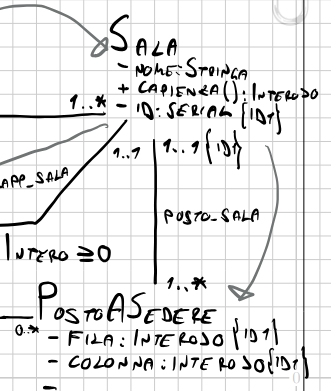 SALA
- NOME: STRINGA
+ CAPIENZA(): INTERO>0
1..* - ID: SERIAL {ID1}
1..1 1..1 {ID1}
APP_SALA
POSTO_SALA
INTERO ≥0
1..*
POSTOASEDERE
0..*
- FILA: INTERO>0 {ID1}
- COLONNA: INTERO>0 {ID1}
-